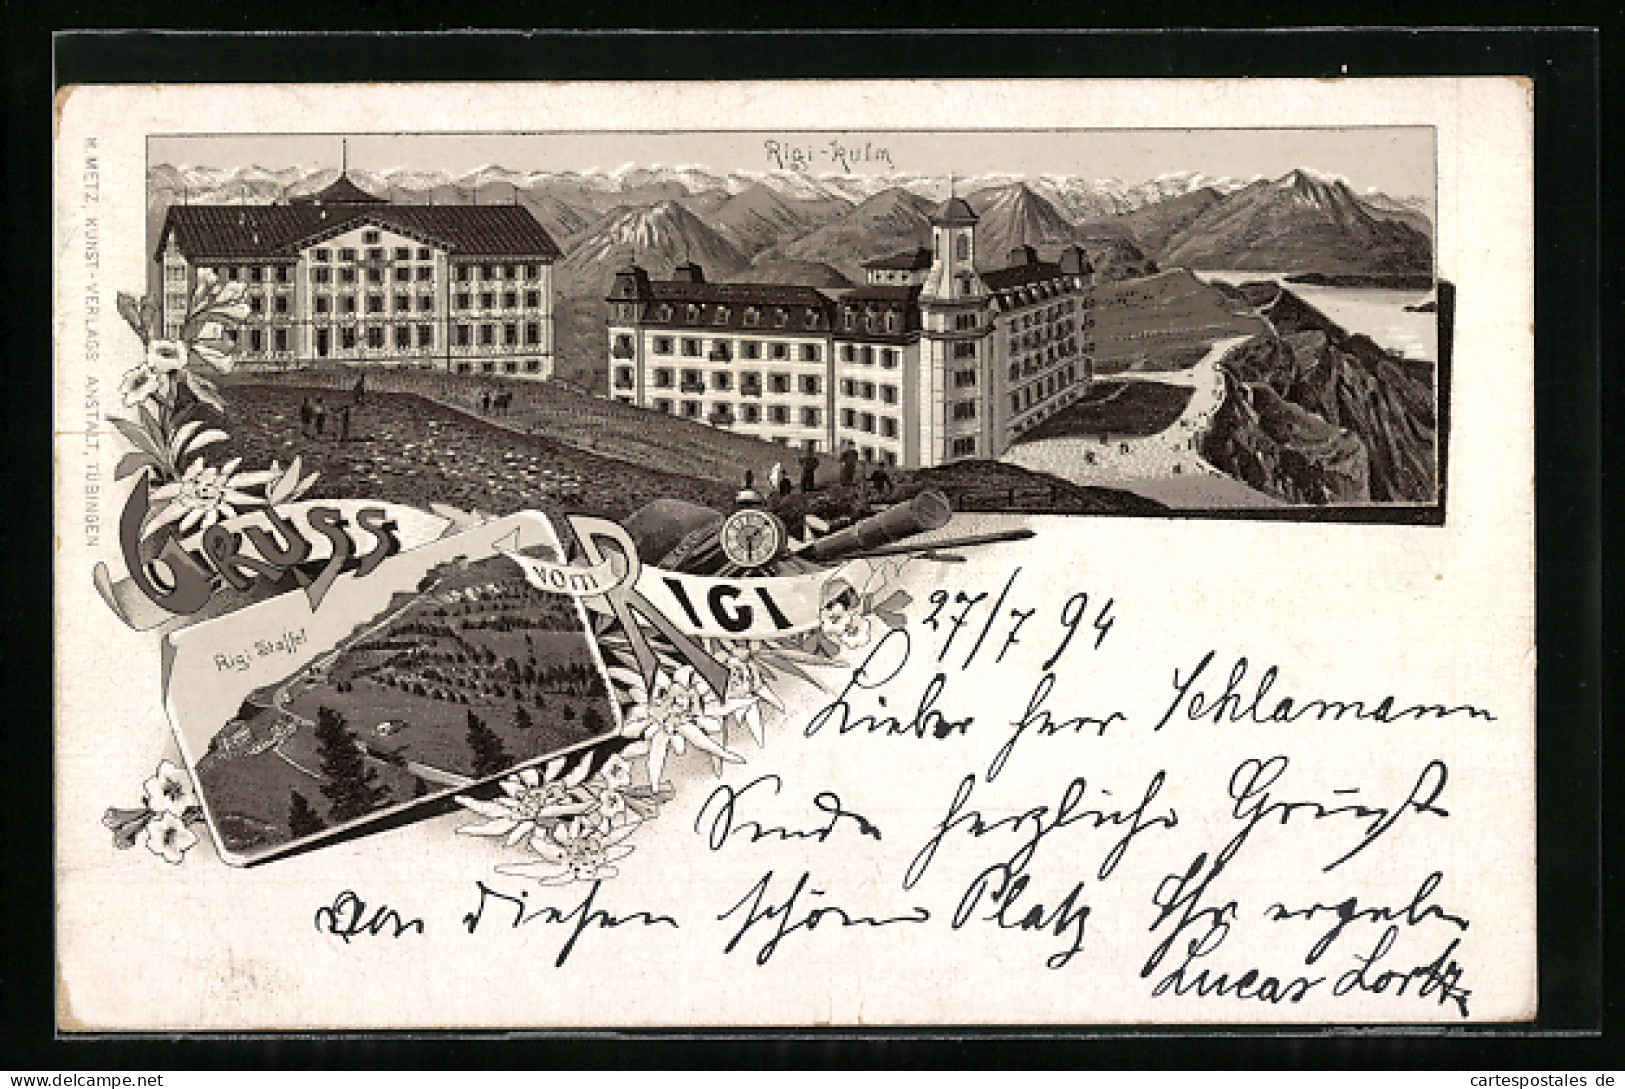 Rigi-Kulm
H. METZ, KUNST-VERLAGS ANSTALT, TÜBINGEN
GRUSS vom RIGI
Rigi Staffel
27/7 94
Lieber Herr Schlamann
Sende herzliche Grüsse
von diesen schönen Platz Ihr ergeben
Lucas Lortz
cartespostales de